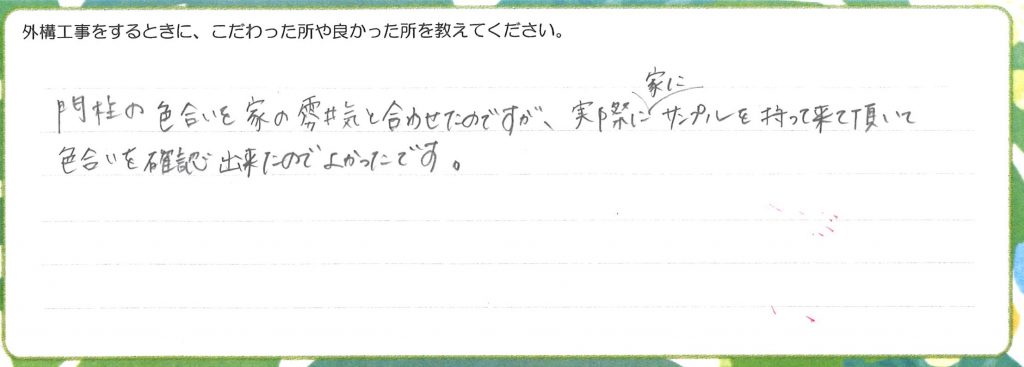 外構工事をするときに、こだわった所や良かった所を教えてください。
門柱の色合いを家の雰井気と合わせたのですが、実際に家にサンプルを持って来て頂いて
色合いを確認出来たのでよかったです。